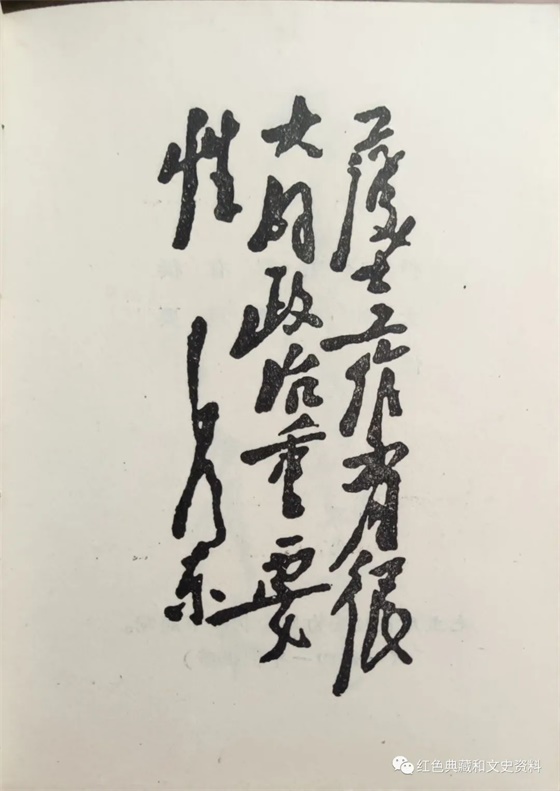 護士工作有很
大的政治重要
性 毛泽东
红色典藏和文史资料